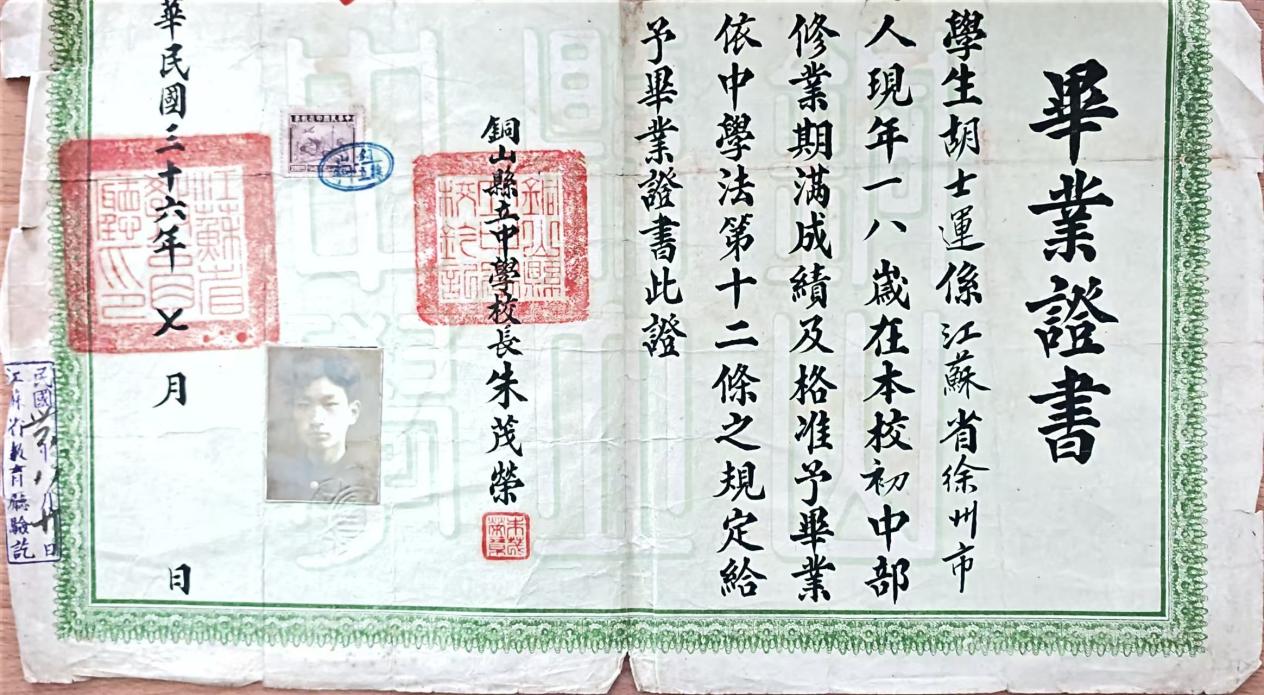 畢業證書
學生胡士運係江蘇省徐州市
人現年一八歲在本校初中部
修業期滿成績及格准予畢業
依中學法第十二條之規定給
予畢業證書此證
銅山縣立中學校長朱茂榮
朱茂榮章
銅山縣
校鈐記
華民國三十六年七月 日
江蘇省
教育
廳印
民國 八 日
江蘇省教育廳驗訖